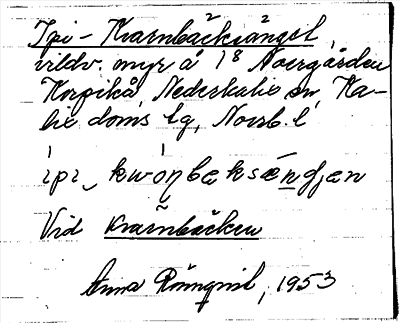 Ypi - Kvarnbäcksängel,
vildv. myr å 18 Norrgården
Korpikå, Nederkalix sn, Ka-
lix doms lg, Norrb. l
ìpi, kwóŋbæksǽndjen
Vid Kvarnbäcken
Anna Rönnqvist, 1953